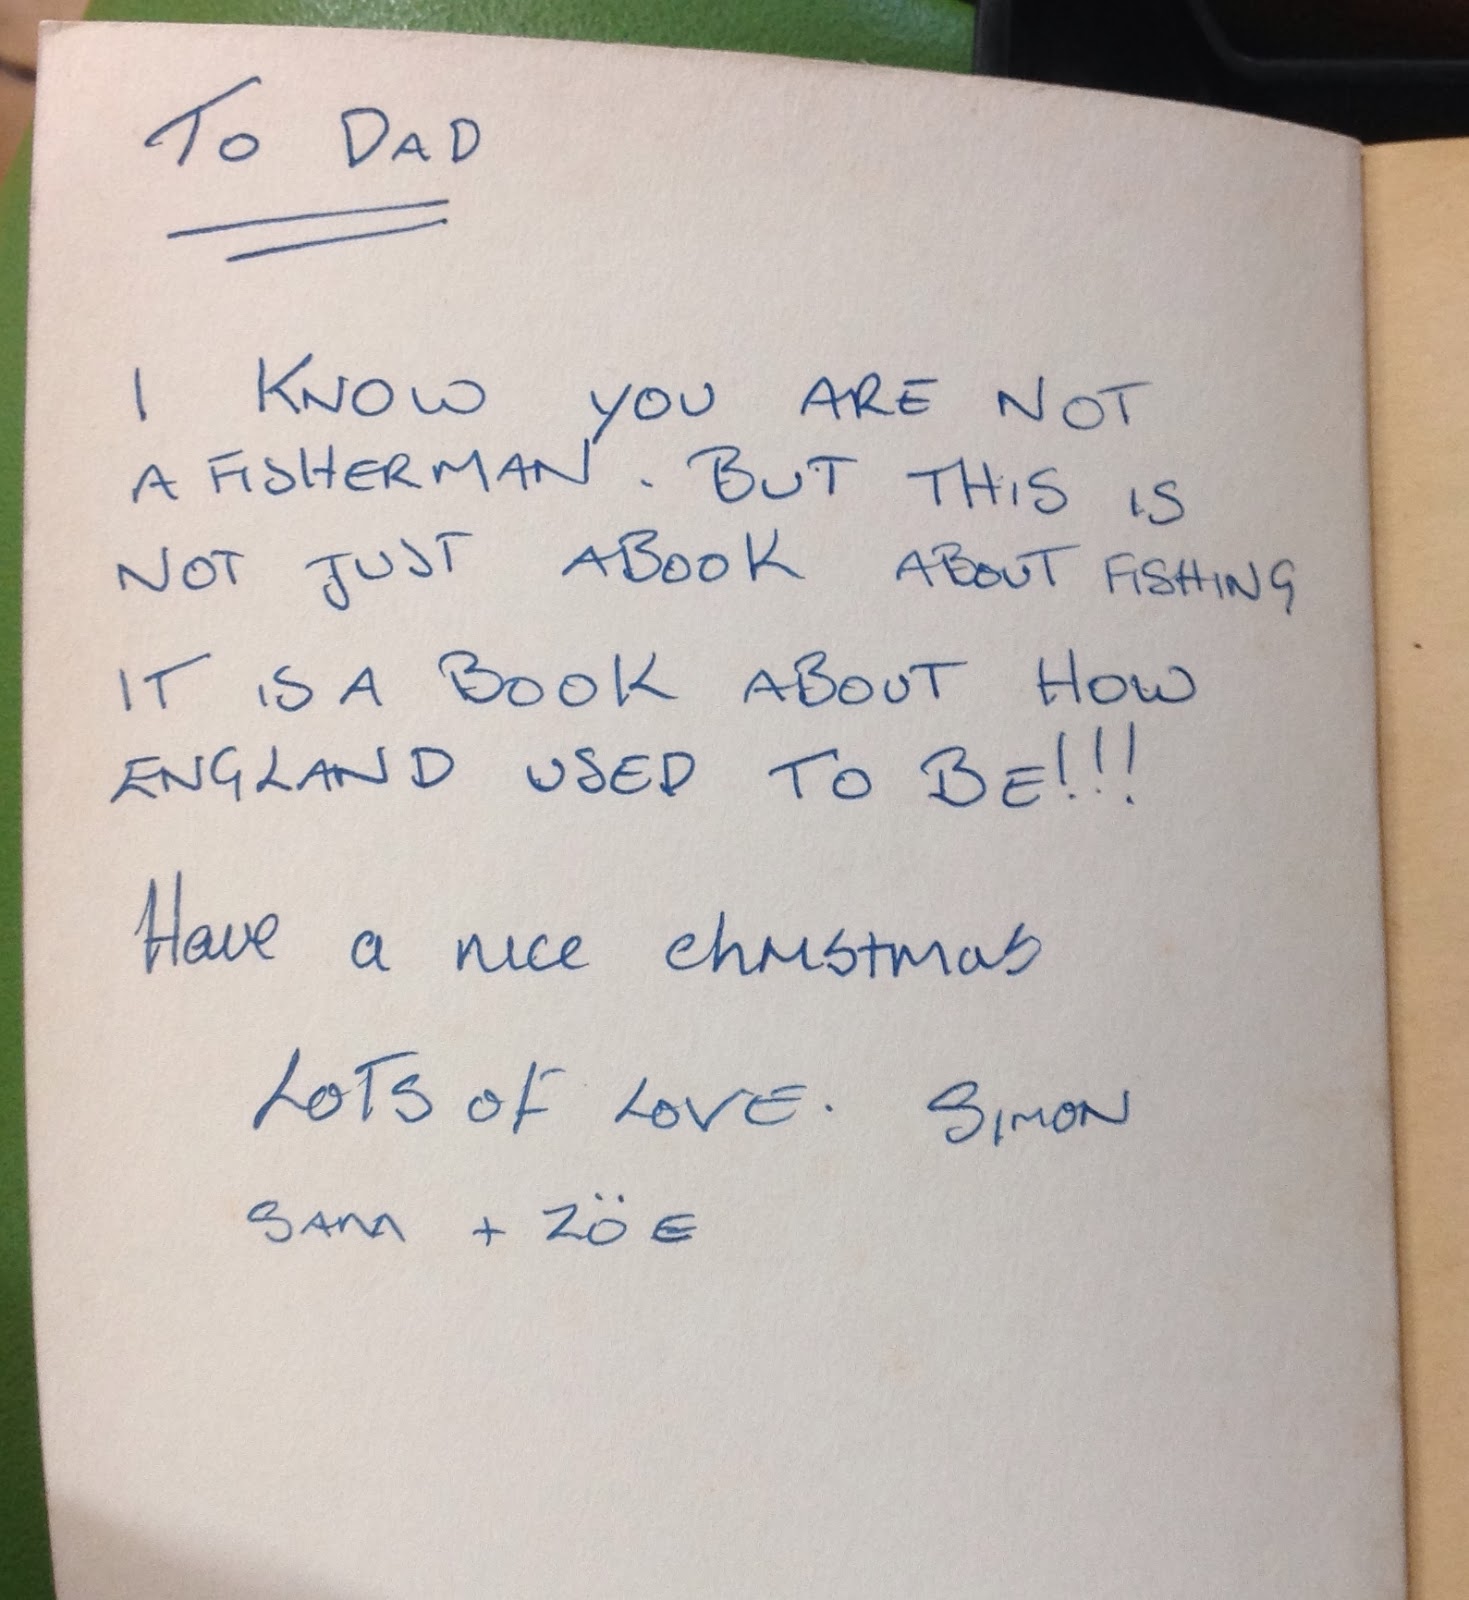 TO DAD
I KNOW YOU ARE NOT
A FISHERMAN. BUT THIS IS
NOT JUST A BOOK ABOUT FISHING
IT IS A BOOK ABOUT HOW
ENGLAND USED TO BE!!!
Have a nice christmas
LOTS OF LOVE. SIMON
SAM + ZÖE